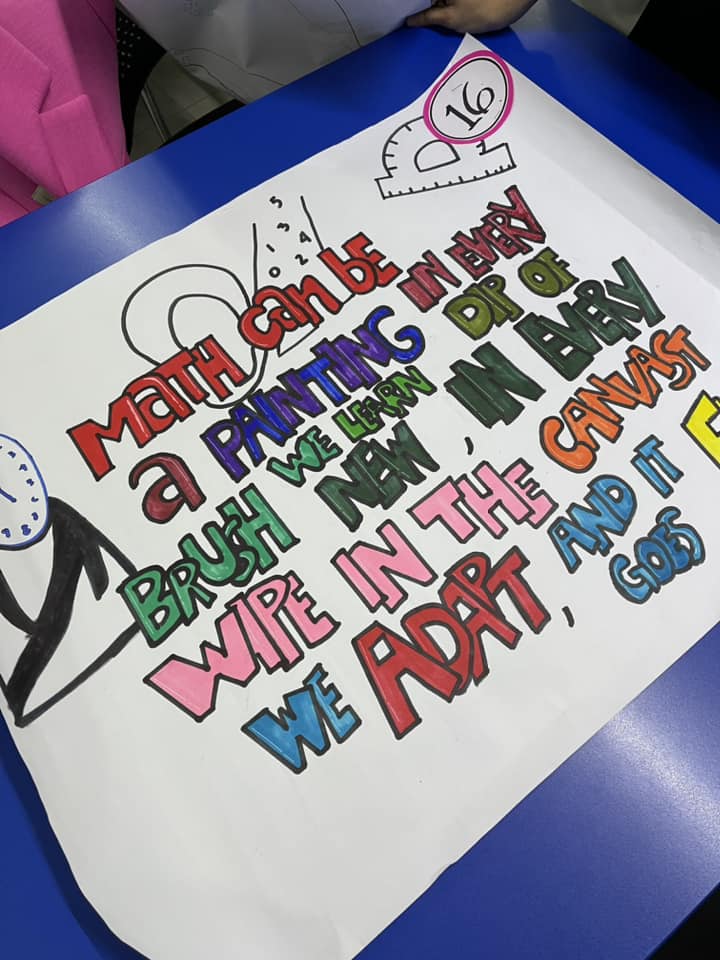 16
5
1 3 4
0 2
MaTH can bE IN EVERY
a PAINTING DIP OF
BRUSH WE LEARN
NEW, IN EVERY
WIPE IN THE CANVAST
WE ADAPT, AND IT
GOES